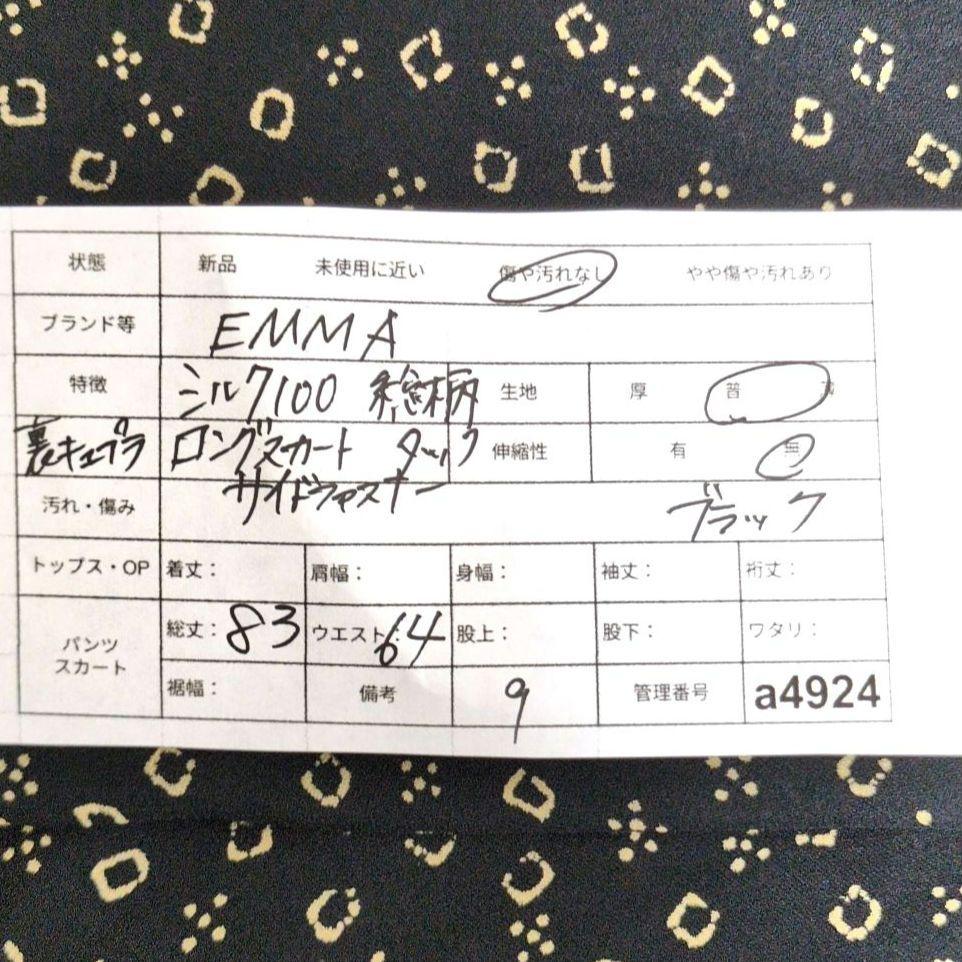 状態 新品 未使用に近い 傷や汚れなし やや傷や汚れあり
ブランド等 EMMA
特徴 シルク100 総柄 生地 厚 普 薄
裏キュプラ ロングスカート タック 伸縮性 有 無
サイドファスナー
汚れ・傷み ブラック
トップス・OP 着丈: 肩幅: 身幅: 袖丈: 裄丈:
パンツ スカート 総丈: 83 ウエスト: 64 股上: 股下: ワタリ:
裾幅: 備考 9 管理番号 a4924